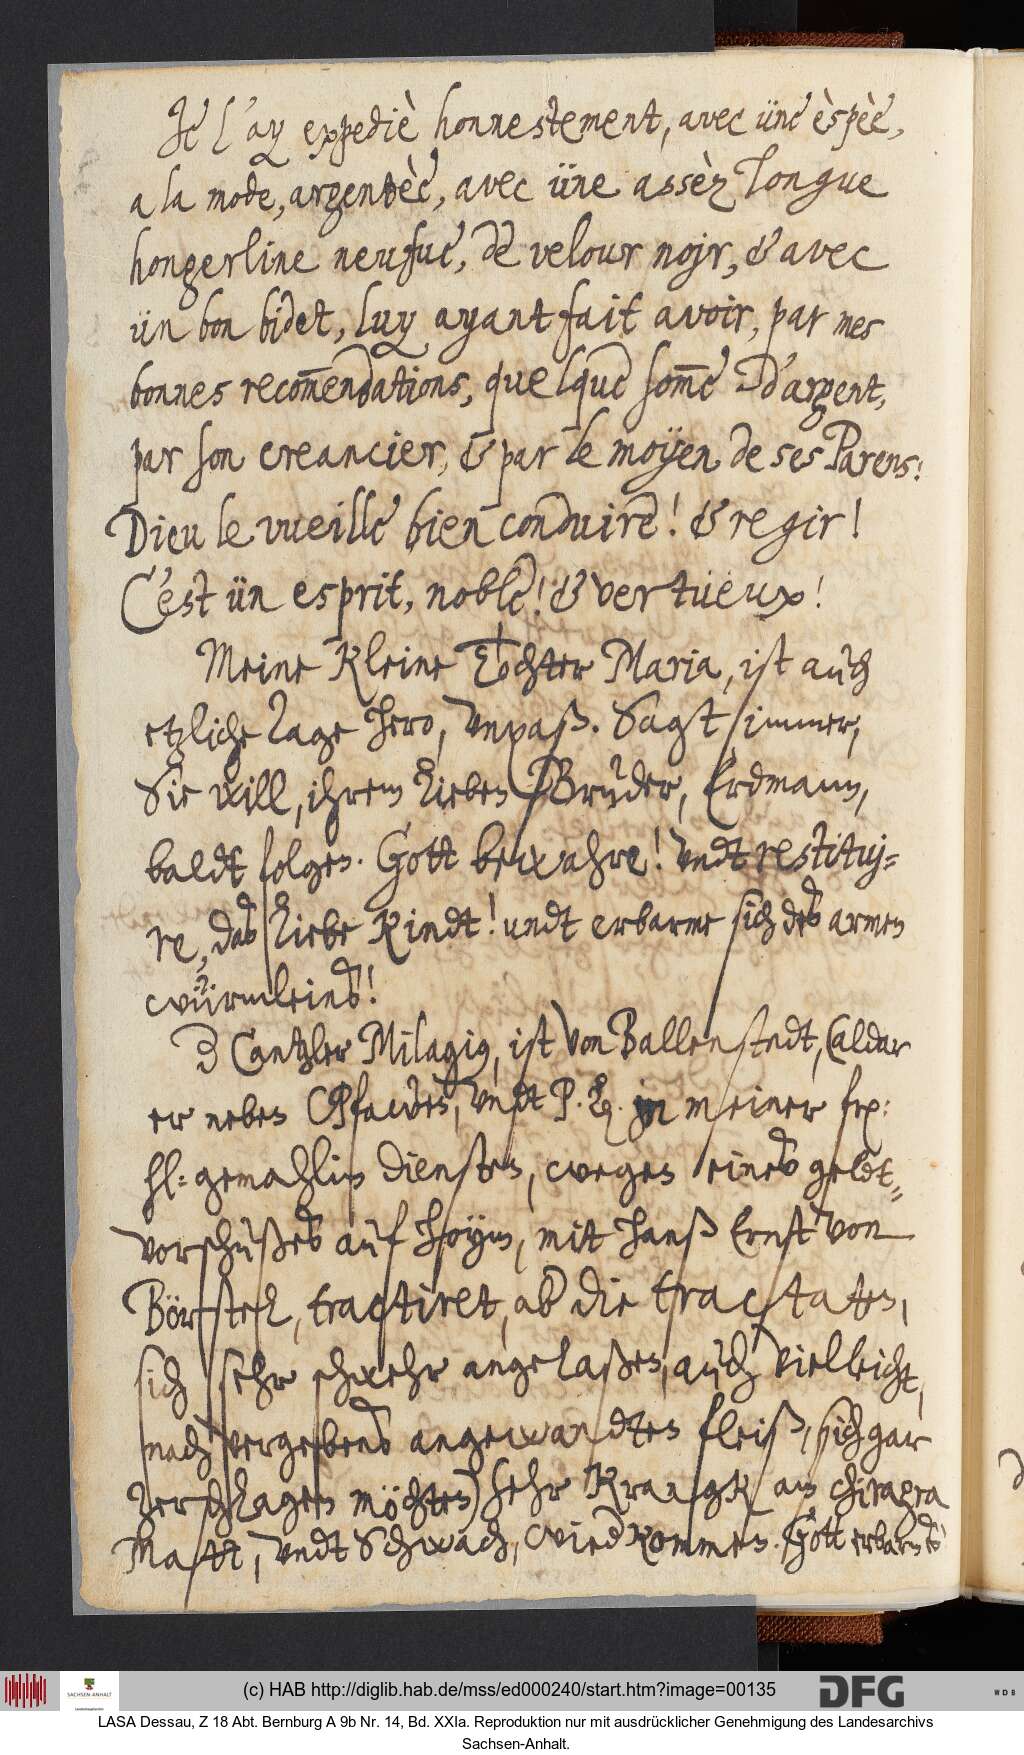 Je l'ay expediè honnestement, avec üne èspèe,
a la mode, argentèe, avec üne assèz longue
hongerline neufue, de velour nojr, & avec
ün bon bidet, luy ayant fait avoir, par mes
bonnes recom̅endations, quelque som̅e d'argent,
par son creancier, & par le moÿen de ses Parens:
Dieu le vueille bien conduire! & regir!
C'est ün esprit, noble! & vertüeux!
Meine kleine Tochter Maria, ist auch
etzliche Tage hero, vnpaß. Sagt immer,
Sie will, ihrem lieben Bruder, Erdmann,
baldt folgen. Gott bewahre! vndt restituj=
re, das liebe Kindt! undt erbarme sich des armen
würmleins!
D Cantzler Milagius, ist von Ballenstedt, (alda
er neben Pfawes, vndt P. L. in meiner frx:
hl: gemahlin diensten, wegen eines geldt=
vorschußes auf Hoym, mit Hanß Ernst von
Börstel, tractiret, ob die tractaten,
sich sehr schwehr angelaßen, auch vielleicht,
nach vergebens angewandten fleiß, sich gar
zerschlagen möchten) sehr Krangk, an chiragra
Matt, vndt Schwach, wied kommen. Gott erbarm es
(c) HAB http://diglib.hab.de/mss/ed000240/start.htm?image=00135
SACHSEN-ANHALT
DFG
WDB
LASA Dessau, Z 18 Abt. Bernburg A 9b Nr. 14, Bd. XXIa. Reproduktion nur mit ausdrücklicher Genehmigung des Landesarchivs
Sachsen-Anhalt.